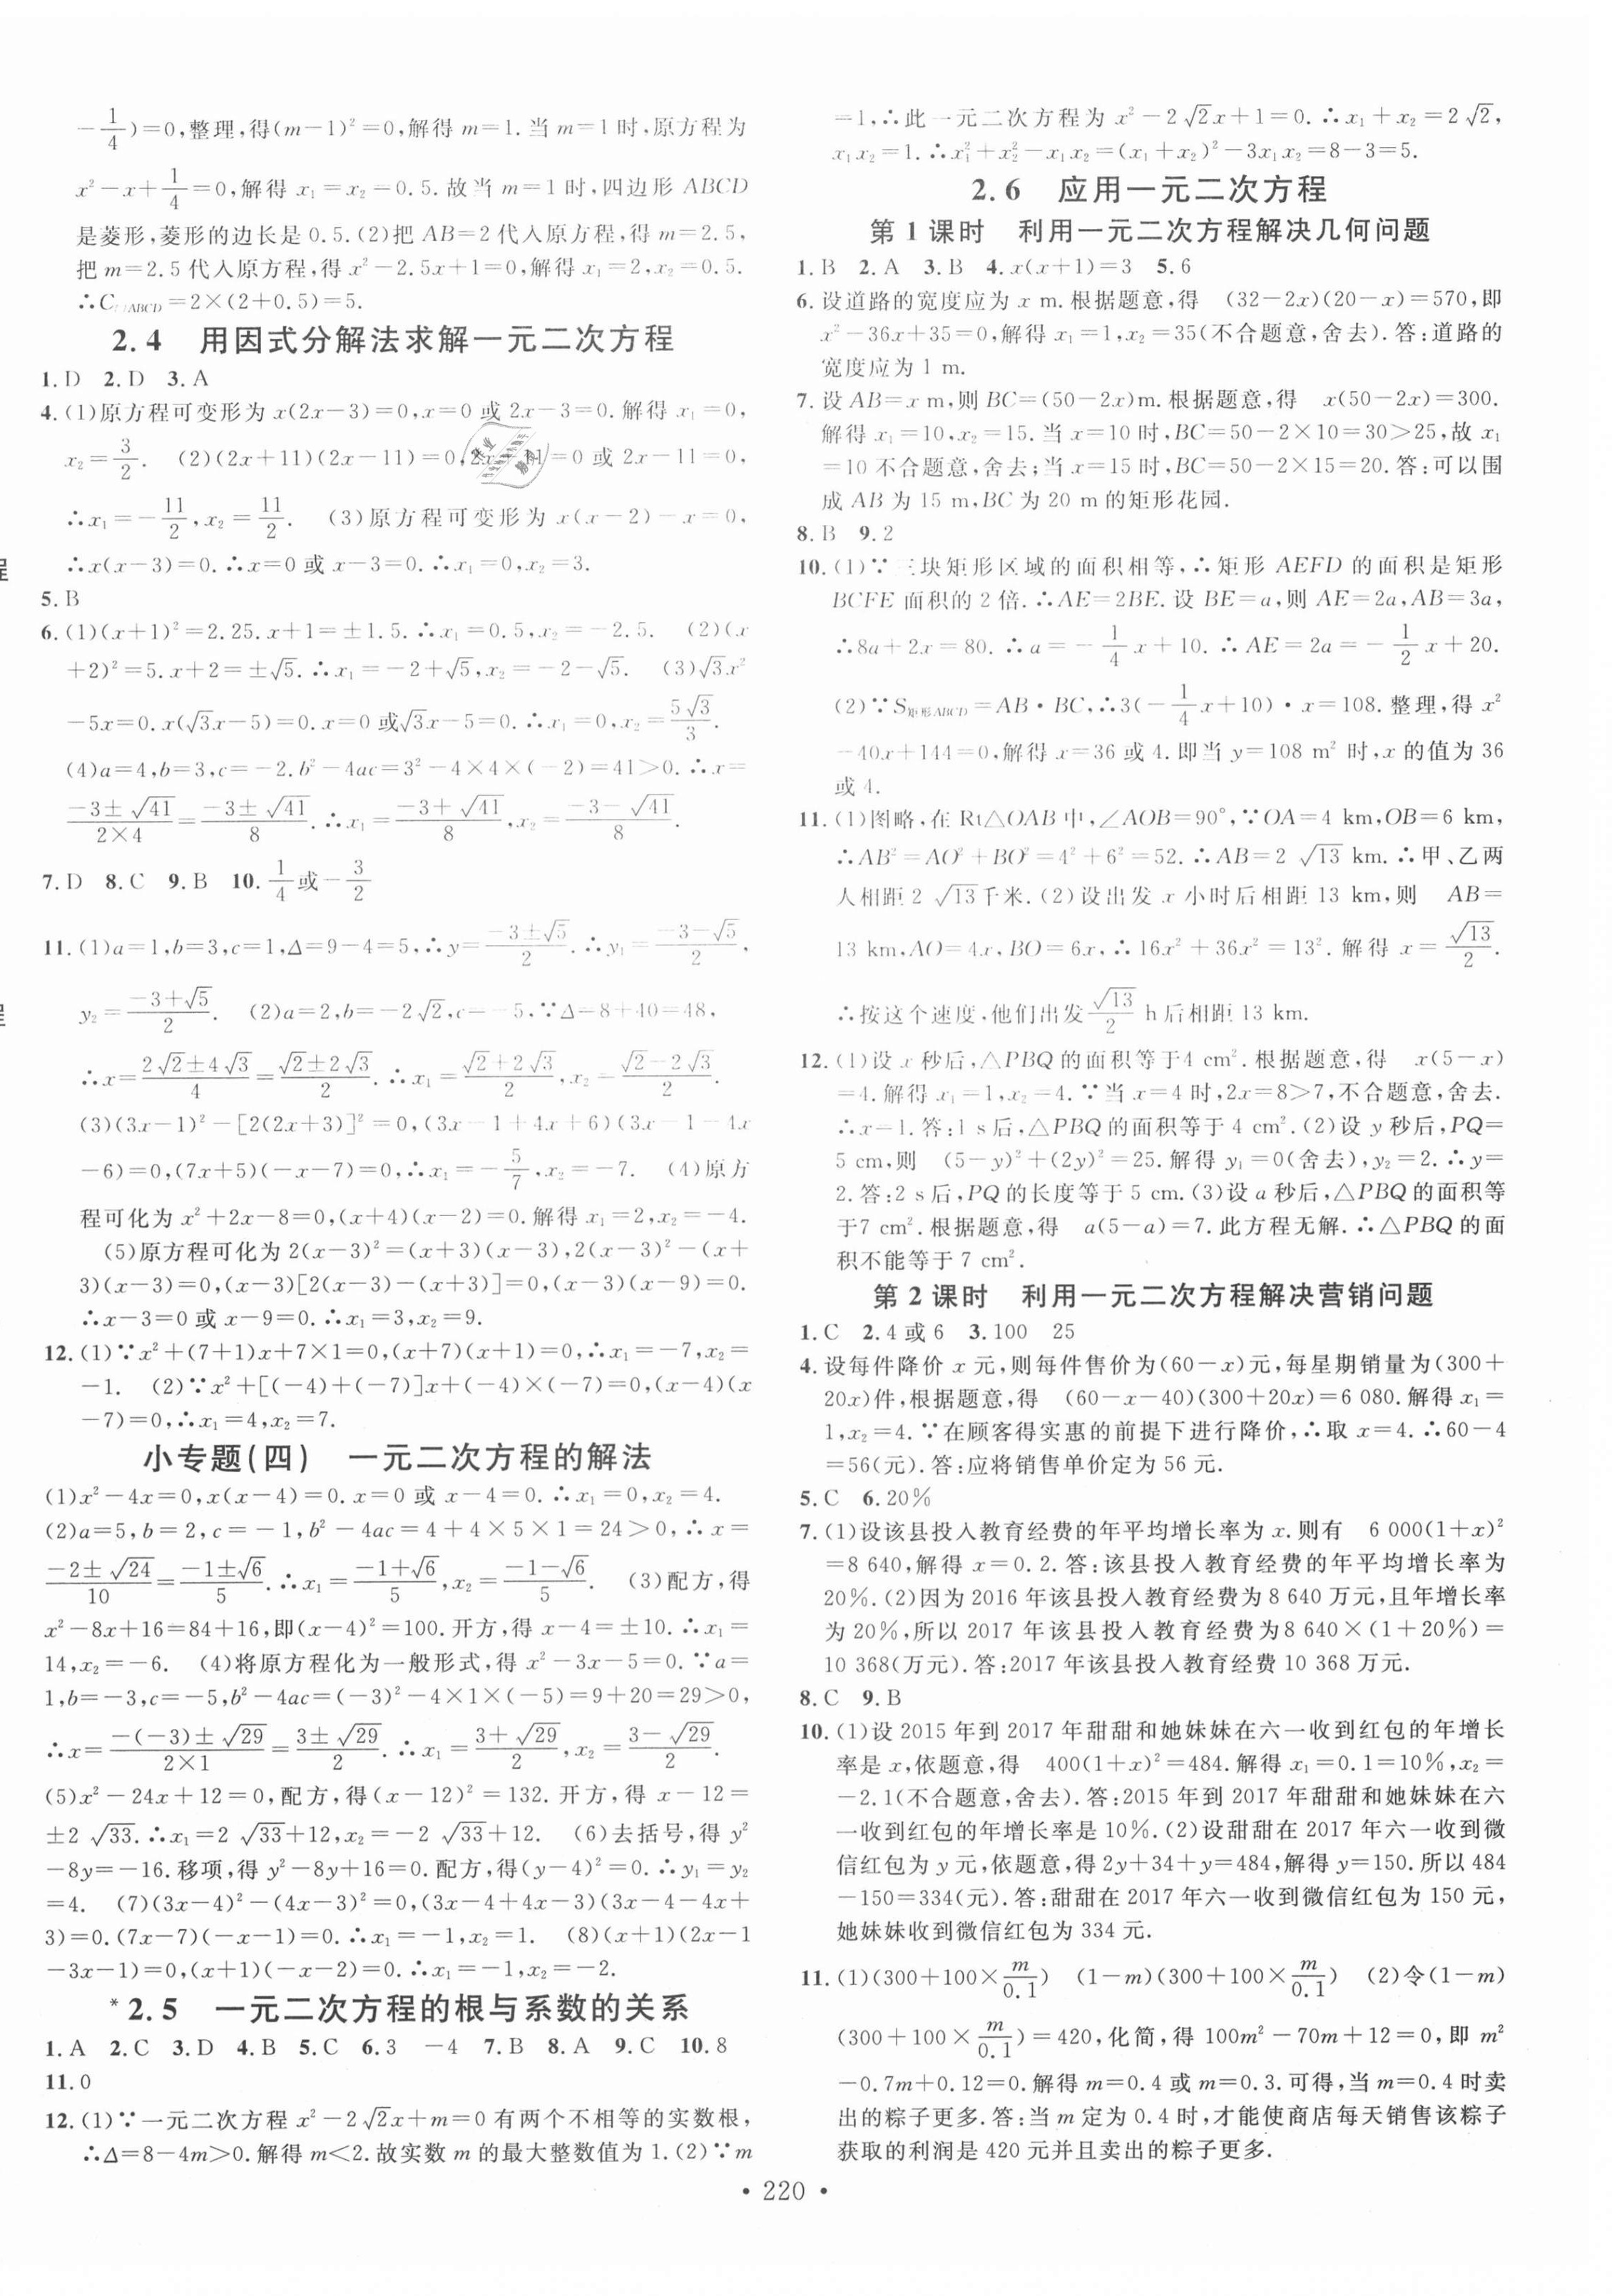 -1/4)=0,整理,得(m-1)²=0,解得 m=1.当 m=1 时,原方程为
x²-x+1/4=0,解得 x₁=x₂=0.5.故当 m=1 时,四边形 ABCD
是菱形,菱形的边长是 0.5.(2)把 AB=2 代入原方程,得 m=2.5,
把 m=2.5 代入原方程,得 x²-2.5x+1=0,解得 x₁=2,x₂=0.5.
∴C ABCD=2×(2+0.5)=5.
2.4 用因式分解法求解一元二次方程
1.D 2.D 3.A
4.(1)原方程可变形为 x(2x-3)=0,x=0 或 2x-3=0.解得 x₁=0,
x₂=3/2. (2)(2x+11)(2x-11)=0,2x+11=0 或 2x-11=0,
∴x₁=-11/2,x₂=11/2. (3)原方程可变形为 x(x-2)-x=0,
∴x(x-3)=0.∴x=0 或 x-3=0.∴x₁=0,x₂=3.
5.B
6.(1)(x+1)²=2.25.x+1=±1.5.∴x₁=0.5,x₂=-2.5. (2)(x
+2)²=5.x+2=±√5.∴x₁=-2+√5,x₂=-2-√5. (3)√3x²
-5x=0.x(√3x-5)=0.x=0 或√3x-5=0.∴x₁=0,x₂=5√3/3.
(4)a=4,b=3,c=-2.b²-4ac=3²-4×4×(-2)=41>0.∴x=
(-3±√41)/(2×4)=(-3±√41)/8.∴x₁=(-3+√41)/8,x₂=(-3-√41)/8.
7.D 8.C 9.B 10.1/4或-3/2
11.(1)a=1,b=3,c=1,Δ=9-4=5,∴y=(-3±√5)/2.∴y₁=(-3-√5)/2,
y₂=(-3+√5)/2. (2)a=2,b=-2√2,c=-5,∵Δ=8+40=48,
∴x=(2√2±4√3)/4=(√2±2√3)/2.∴x₁=(√2+2√3)/2,x₂=(√2-2√3)/2.
(3)(3x-1)²-[2(2x+3)]²=0,(3x-1+4x+6)(3x-1-4x
-6)=0,(7x+5)(-x-7)=0,∴x₁=-5/7,x₂=-7. (4)原方
程可化为 x²+2x-8=0,(x+4)(x-2)=0.解得 x₁=2,x₂=-4.
(5)原方程可化为 2(x-3)²=(x+3)(x-3),2(x-3)²-(x+
3)(x-3)=0,(x-3)[2(x-3)-(x+3)]=0,(x-3)(x-9)=0.
∴x-3=0 或 x-9=0.∴x₁=3,x₂=9.
12.(1)∵x²+(7+1)x+7×1=0,(x+7)(x+1)=0,∴x₁=-7,x₂=
-1. (2)∵x²+[(-4)+(-7)]x+(-4)×(-7)=0,(x-4)(x
-7)=0,∴x₁=4,x₂=7.
小专题(四) 一元二次方程的解法
(1)x²-4x=0,x(x-4)=0.x=0 或 x-4=0.∴x₁=0,x₂=4.
(2)a=5,b=2,c=-1,b²-4ac=4+4×5×1=24>0,∴x=
(-2±√24)/10=(-1±√6)/5.∴x₁=(-1+√6)/5,x₂=(-1-√6)/5. (3)配方,得
x²-8x+16=84+16,即(x-4)²=100.开方,得 x-4=±10.∴x₁=
14,x₂=-6. (4)将原方程化为一般形式,得 x²-3x-5=0.∵a=
1,b=-3,c=-5,b²-4ac=(-3)²-4×1×(-5)=9+20=29>0,
∴x=(-(-3)±√29)/(2×1)=(3±√29)/2.∴x₁=(3+√29)/2,x₂=(3-√29)/2.
(5)x²-24x+12=0,配方,得(x-12)²=132.开方,得 x-12=
±2√33.∴x₁=2√33+12,x₂=-2√33+12. (6)去括号,得 y²
-8y=-16.移项,得 y²-8y+16=0.配方,得(y-4)²=0.∴y₁=y₂
=4. (7)(3x-4)²-(4x-3)²=0,(3x-4+4x-3)(3x-4-4x+
3)=0.(7x-7)(-x-1)=0.∴x₁=-1,x₂=1. (8)(x+1)(2x-1
-3x-1)=0,(x+1)(-x-2)=0.∴x₁=-1,x₂=-2.
*2.5 一元二次方程的根与系数的关系
1.A 2.C 3.D 4.B 5.C 6.3 -4 7.B 8.A 9.C 10.8
11.0
12.(1)∵一元二次方程 x²-2√2x+m=0 有两个不相等的实数根,
∴Δ=8-4m>0.解得 m<2.故实数 m 的最大整数值为 1.(2)∵m
=1,∴此一元二次方程为 x²-2√2x+1=0.∴x₁+x₂=2√2,
x₁x₂=1.∴x₁²+x₂²-x₁x₂=(x₁+x₂)²-3x₁x₂=8-3=5.
2.6 应用一元二次方程
第 1 课时 利用一元二次方程解决几何问题
1.B 2.A 3.B 4.x(x+1)=3 5.6
6.设道路的宽度应为 x m.根据题意,得 (32-2x)(20-x)=570,即
x²-36x+35=0,解得 x₁=1,x₂=35(不合题意,舍去).答:道路的
宽度应为 1 m.
7.设 AB=x m,则 BC=(50-2x)m.根据题意,得 x(50-2x)=300.
解得 x₁=10,x₂=15.当 x=10 时,BC=50-2×10=30>25,故 x₁
=10 不合题意,舍去;当 x=15 时,BC=50-2×15=20.答:可以围
成 AB 为 15 m,BC 为 20 m 的矩形花园.
8.B 9.2
10.(1)∵三块矩形区域的面积相等,∴矩形 AEFD 的面积是矩形
BCFE 面积的 2 倍.∴AE=2BE.设 BE=a,则 AE=2a,AB=3a,
∴8a+2x=80.∴a=-1/4x+10.∴AE=2a=-1/2x+20.
(2)∵S矩形ABCD=AB·BC,∴3(-1/4x+10)·x=108.整理,得 x²
-40x+144=0,解得 x=36 或 4.即当 y=108 m² 时,x 的值为 36
或 4.
11.(1)图略,在 Rt△OAB 中,∠AOB=90°,∵OA=4 km,OB=6 km,
∴AB²=AO²+BO²=4²+6²=52.∴AB=2√13 km.∴甲、乙两
人相距 2√13千米.(2)设出发 x 小时后相距 13 km,则 AB=
13 km,AO=4x,BO=6x,∴16x²+36x²=13².解得 x=√13/2.
∴按这个速度,他们出发√13/2 h后相距 13 km.
12.(1)设 x 秒后,△PBQ 的面积等于4 cm².根据题意,得 x(5-x)
=4.解得 x₁=1,x₂=4.∵当 x=4 时,2x=8>7,不合题意,舍去.
∴x=1.答:1 s 后,△PBQ 的面积等于 4 cm².(2)设 y 秒后,PQ=
5 cm,则 (5-y)²+(2y)²=25.解得 y₁=0(舍去),y₂=2.∴y=
2.答:2 s 后,PQ 的长度等于 5 cm.(3)设 a 秒后,△PBQ 的面积等
于7 cm².根据题意,得 a(5-a)=7.此方程无解.∴△PBQ 的面
积不能等于 7 cm².
第 2 课时 利用一元二次方程解决营销问题
1.C 2.4 或 6 3.100 25
4.设每件降价 x 元,则每件售价为(60-x)元,每星期销量为(300+
20x)件,根据题意,得 (60-x-40)(300+20x)=6 080.解得 x₁=
1,x₂=4.∵在顾客得实惠的前提下进行降价,∴取 x=4.∴60-4
=56(元).答:应将销售单价定为 56 元.
5.C 6.20%
7.(1)设该县投入教育经费的年平均增长率为 x.则有 6 000(1+x)²
=8 640,解得 x=0.2.答:该县投入教育经费的年平均增长率为
20%.(2)因为 2016 年该县投入教育经费为 8 640 万元,且年增长率
为 20%,所以 2017 年该县投入教育经费为8 640×(1+20%)=
10 368(万元).答:2017 年该县投入教育经费 10 368 万元.
8.C 9.B
10.(1)设 2015 年到 2017 年甜甜和她妹妹在六一收到红包的年增长
率是 x,依题意,得 400(1+x)²=484.解得 x₁=0.1=10%,x₂=
-2.1(不合题意,舍去).答:2015 年到 2017 年甜甜和她妹妹在六
一收到红包的年增长率是 10%.(2)设甜甜在 2017 年六一收到微
信红包为 y 元,依题意,得 2y+34+y=484,解得 y=150.所以 484
-150=334(元).答:甜甜在 2017 年六一收到微信红包为 150 元,
她妹妹收到微信红包为 334 元.
11.(1)(300+100×m/0.1) (1-m)(300+100×m/0.1) (2)令(1-m)
(300+100×m/0.1)=420,化简,得 100m²-70m+12=0,即 m²
-0.7m+0.12=0.解得 m=0.4 或 m=0.3.可得,当 m=0.4 时卖
出的粽子更多.答:当 m 定为 0.4 时,才能使商店每天销售该粽子
获取的利润是 420 元并且卖出的粽子更多.
• 220 •
程
程